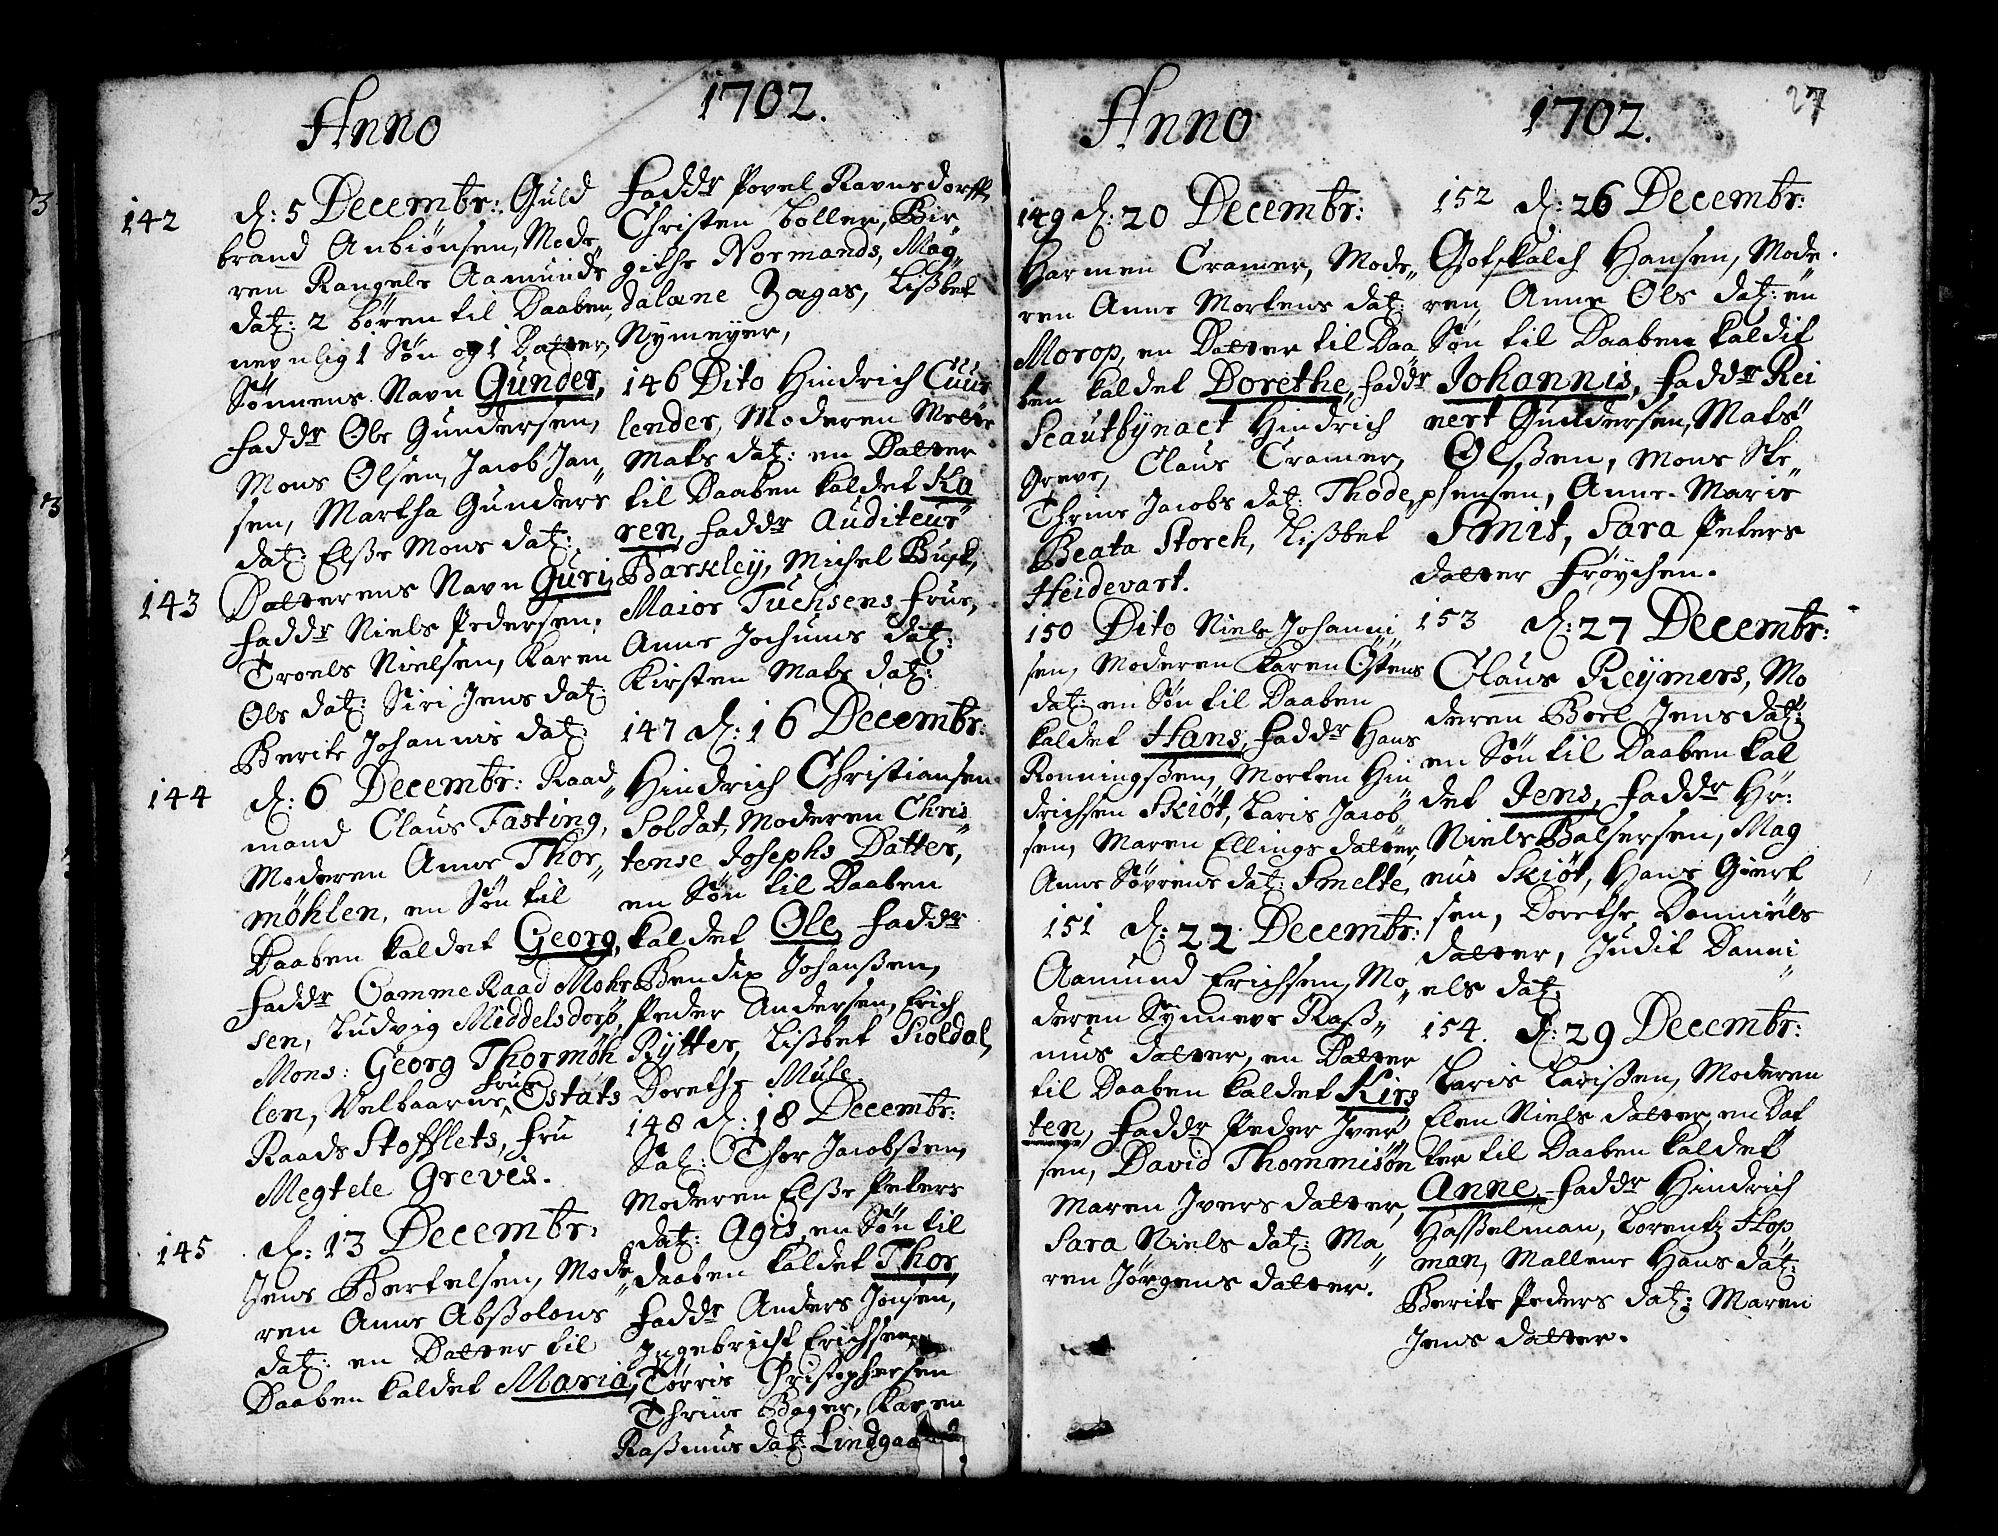 Anno 1702.
142 d: 5 Decembr: Guld
brand Anbiønsen, Mode„
ren Rangele Aamunds
datz: 2 børen til Daaben,
nevnlig 1 Søn og 1 Datter,
Sønnens Navn Gunder,
Faddr Ole Gundersen,
Mons Olsen, Jacob Jan„
sen, Martha Gunders
datz: Elsse Mons datz:
143 Datterens Navn Guri,
Faddr Niels Pedersen,
Troels Nielsen, Karen
Ols datz: Siri Jens datz:
Berite Johannis datz:
144 d: 6 Decembr: Raad„
mand Claus Fasting,
Moderen Anne Thor„
møhlen, en Søn til
Daaben kaldet Georg,
Faddr CammeRaad Mohr
sen, Ludvig Meddelsdorp,
Mons: Georg Thormøh
len, Velbaarne Frue Estats
Raads Stofflets, Fru
Megtele Greves.
145 d: 13 Decembr:
Jens Bertelsen, Mode„
ren Anne Absolons
datz: en Datter til
Daaben kaldet Maria,
Faddr Povel Ravnsdorff,
Christen Boller, Bir„
githe Normands, Mag„
dalane Zagas, Lissbet
Nymeyer,
146 Dito Hindrich Cuur
lender, Moderen Mette
Mats datz: en Datter
til Daaben kaldet Ka„
ren, Faddr Auditeur
Barkley, Michel Busk,
Maior Tuchsens Frue,
Anne Jochums datz:
Kirsten Mats datz:
147 d: 16 Decembr:
Hindrich Christiansen
Soldat, Moderen Chris„
tense Josephs Datter,
en Søn til Daaben
kaldet Ole, Faddr
Bendix Johanssen,
Peder Andersen, Erich
Rytter, Lissbet Skioldal,
Dorethe Mule.
148 d: 18 Decembr:
Sal: Thor Jacobssen,
Moderen Elsse Peters
datz: Agis, en Søn til
daaben kaldet Thor
Faddr Anders Jonsen,
Ingebricht Erichsen,
Tørris Christophersen
Thrine Bager, Karen
Rassmus datz: Lindgaa
Anno 1702. 27
149 d: 20 Decembr:
Harmen Cramer, Mode„
ren Anne Mortens datz:
Morop, en Datter til Daa
ben kaldet Dorethe, Faddr
Scautbynact Hindrich
Greve, Claus Cramer,
Thrine Jacobs datz: Thode,
Beata Storch, Lissbet
Heidevart.
150 Dito Niels Johanni„
sen, Moderen Karen Ostens
datz: en Søn til Daaben
kaldet Hans, Faddr Hans
Ronningssen, Morten Hin
drichsen Skiøt, Laris Jacob„
sen, Maren Ellings datter,
Anne Sørrens datz: Smelte,
151 d: 22 Decembr:
Aamund Erichsen, Mo„
deren Synneve Rass„
mus datter, en Datter
til Daaben kaldet Kirs
ten, Faddr Peder Iver„
sen, David Thommisøn
Maren Ivers datter,
Sara Niels datz: Ma„
ren Jørgens datter.
152 d: 26 Decembr:
Gotskalch Hansen, Mode„
ren, Anne Ols datz: en
Søn til Daaben kaldit
Johannis, Faddr Rei
nert Gundersen, Mats
Olssen, Mons Ste„
phensen, Anne-Marie
Smit, Sara Peters
datter Frøychen.
153 d: 27 Decembr:
Claus Reymers, Mo„
deren Boel Jens datz:
en Søn til Daaben kal
det Jens, Faddr Hr:
Niels Balsersen, Mag
nus Skiøt, Hans Giert
sen, Dorethe Danniels
datter, Judit Danni„
els datz:
154. d: 29 Decembr:
Laris Larissen, Moderen
Elen Niels datter, en Dat
ter til Daaben kaldet
Anne, Faddr Hindrich
Hasselman, Lorentz Hop„
man, Mallene Hans datz:
Berite Peders datz: Maren
Jens datter.